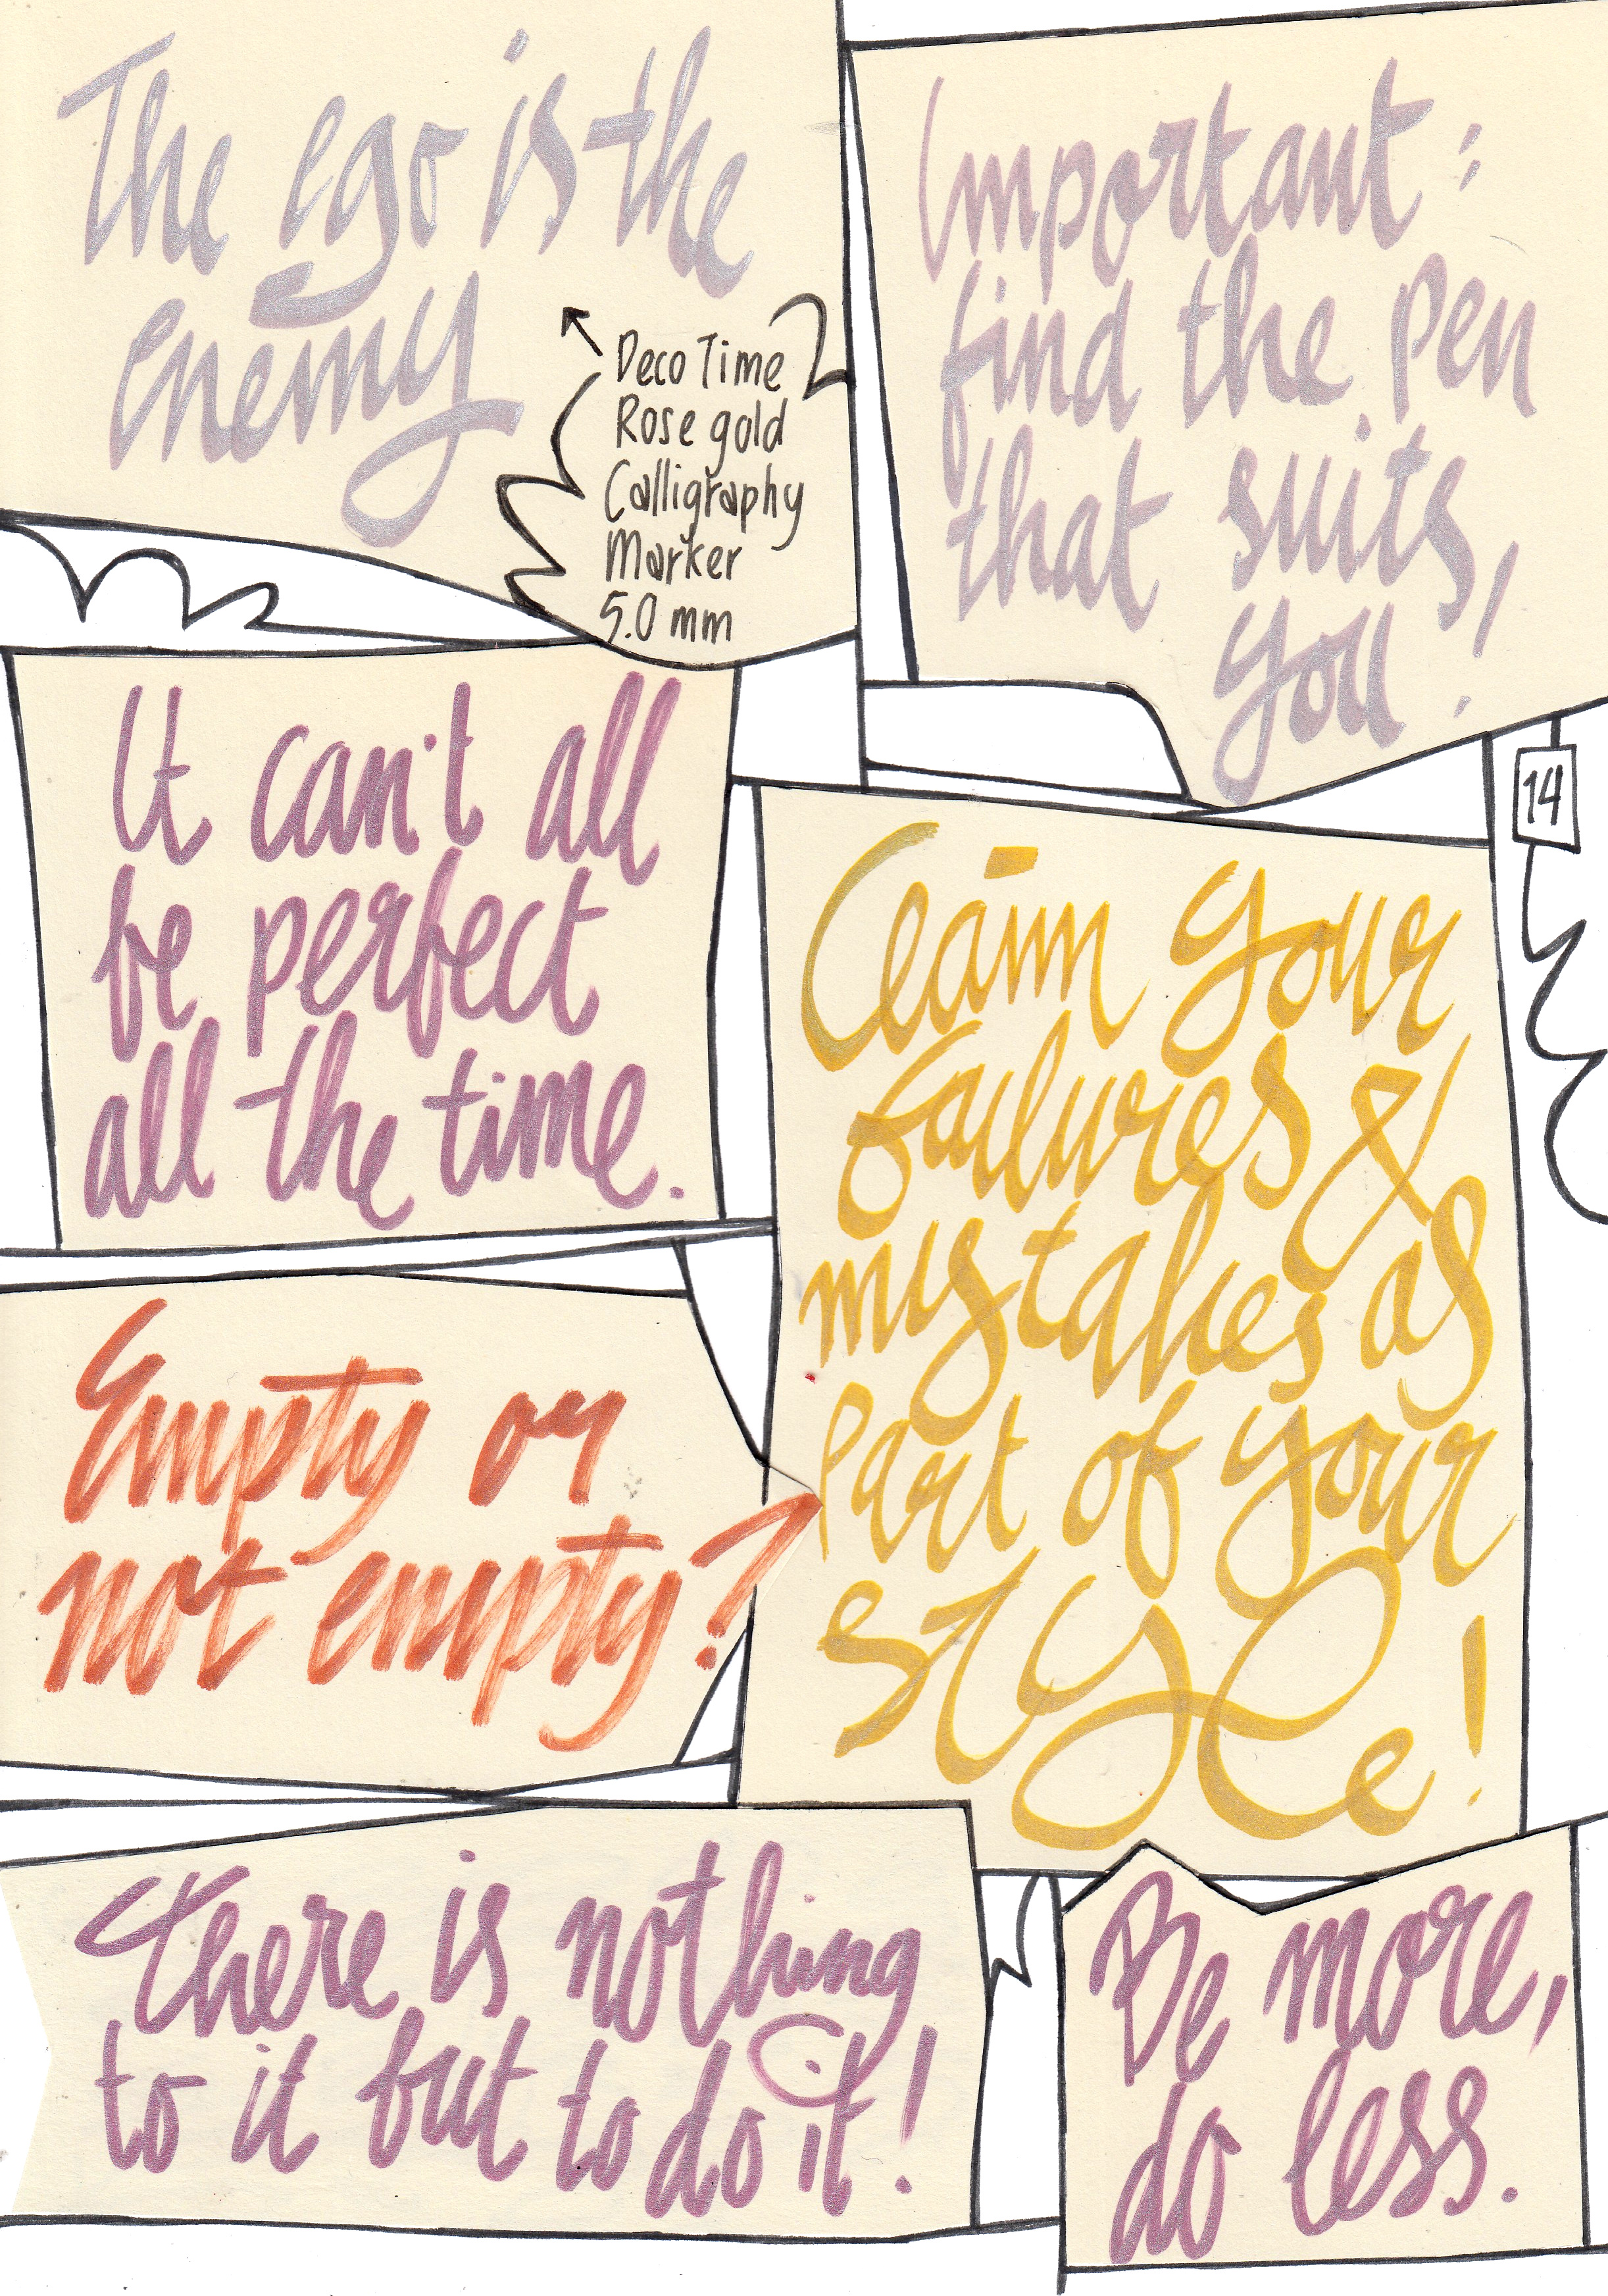 The ego is the
enemy
Deco Time
Rose gold
Calligraphy
Marker
5.0 mm
Important:
find the pen
that suits,
you!
It can't all
be perfect
all the time.
14
Claim your
failures &
mystakes as
part of your
style!
Empty or
not empty?
there is nothing
to it but to do it!
Be more,
do less.